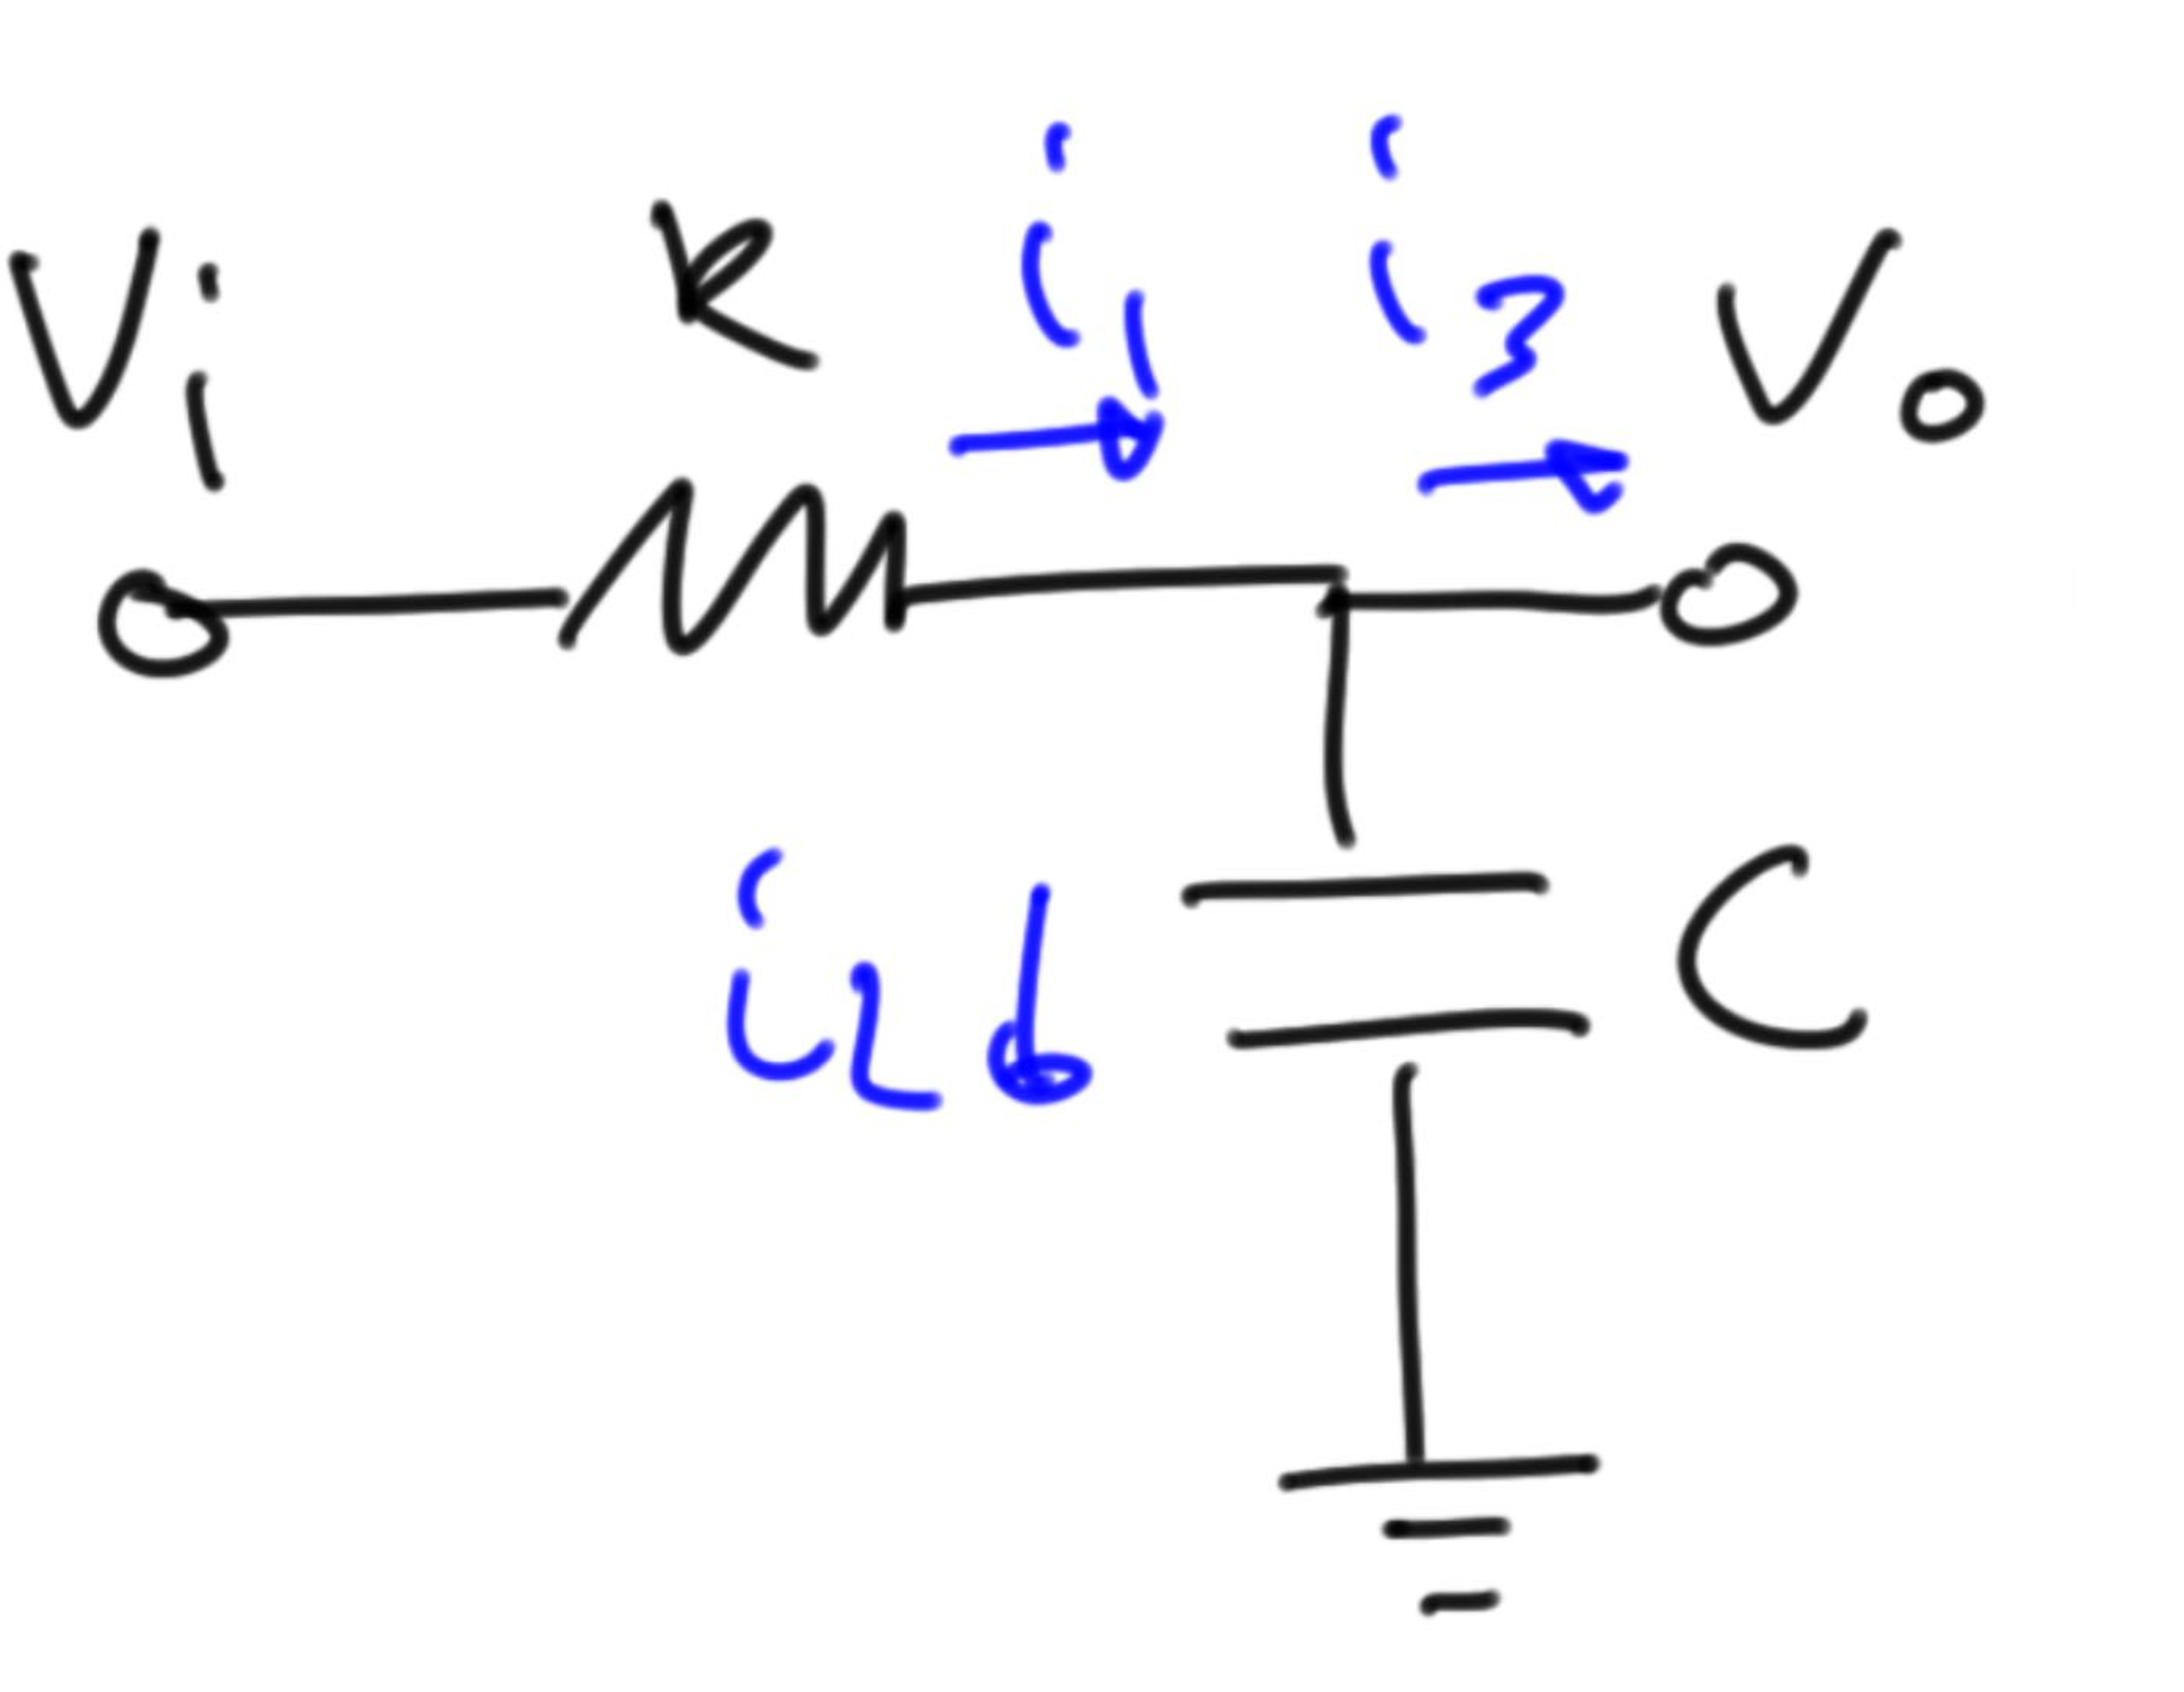 Vi R i1 i3 Vo
i2 C